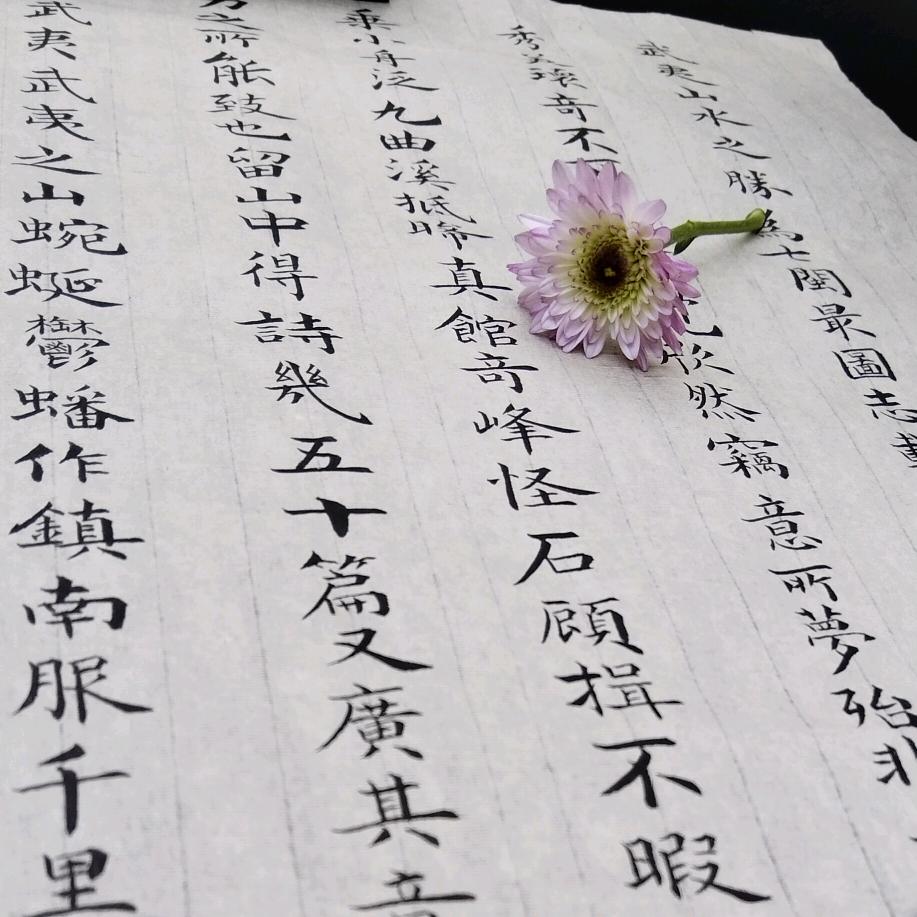 武夷山水之勝為七閩最圖志載
秀美瓌竒不欣然竊意所夢殆非
乘小舟泛九曲溪抵晞真館竒峰怪石顧揖不暇
之所能致也留山中得詩幾五十篇又廣其
武夷武夷之山蜿蜒鬱蟠作鎮南服千里